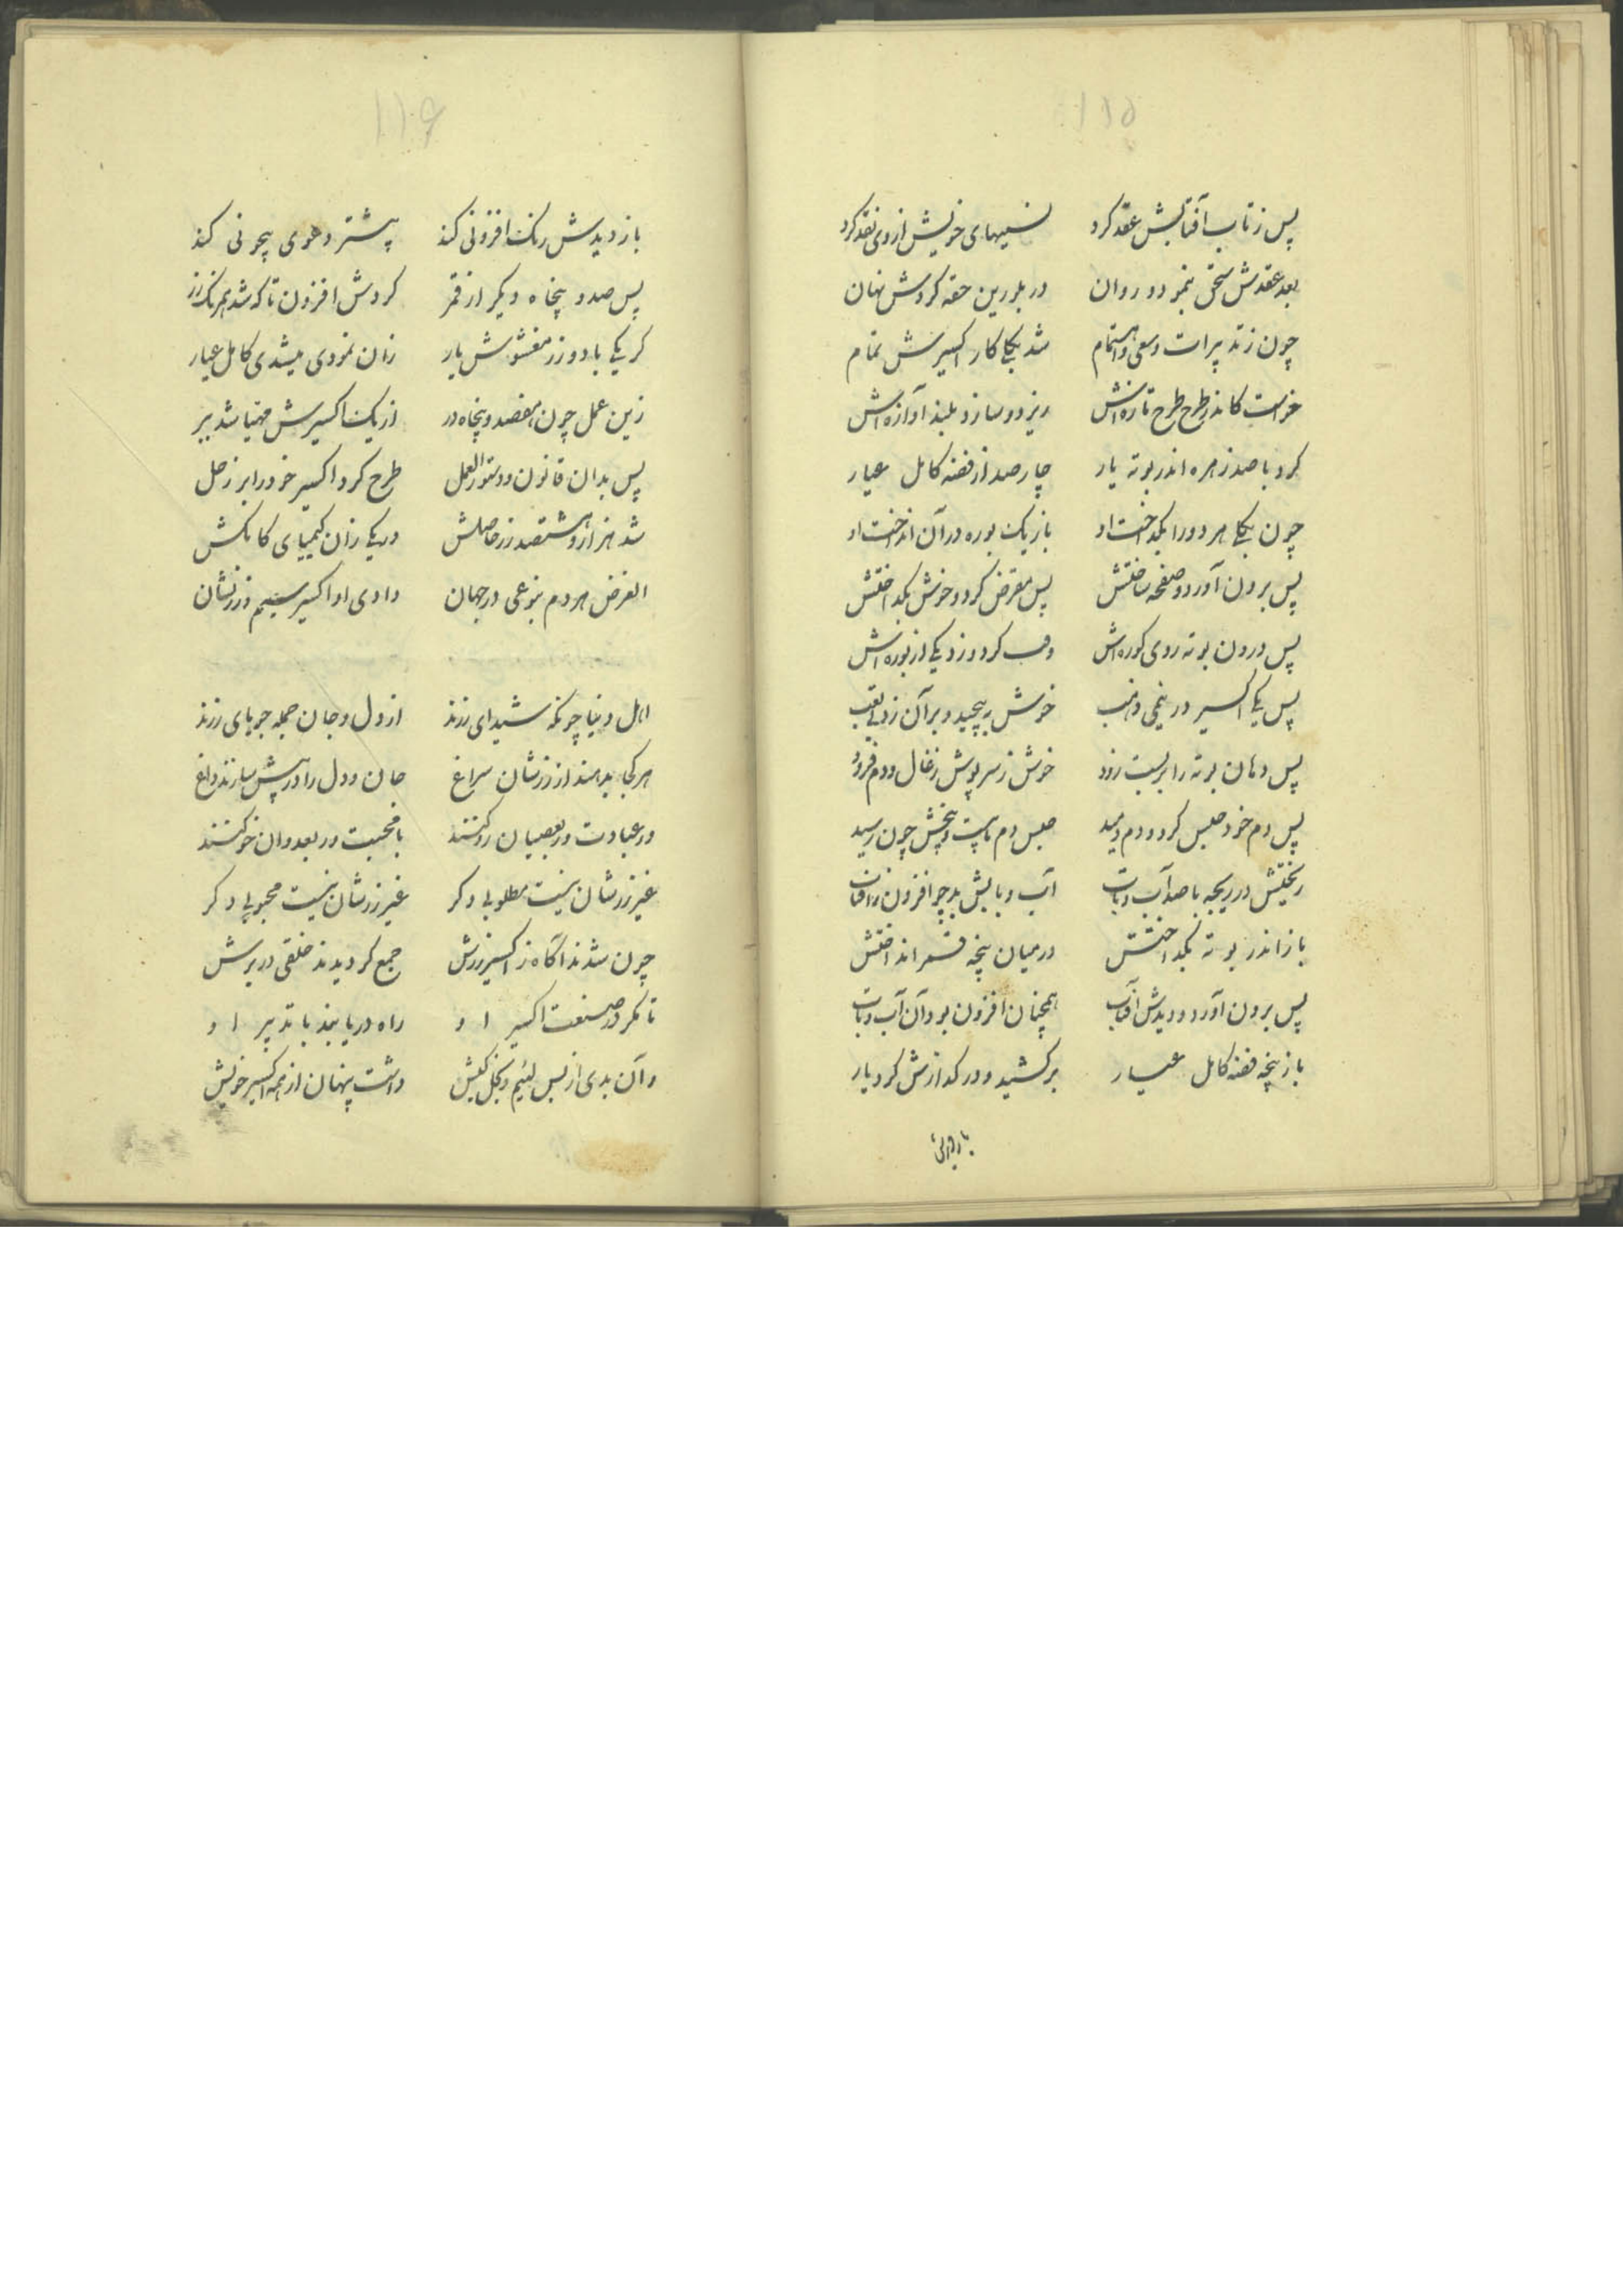 ۱۱۵
پس ز تاب آفتابش عقد کرد نسیهای خویش از وی نقد کرد
بعد عقدش سحق بنمود و روان در بلورین حقه کردش نهان
چون ز تدبیرات و سعی و اهتمام شد بیکجا کار اکسیرش تمام
خواست کاندر طرح طرح تازه‌اش ریزد و سازد بلند آوازه‌اش
کرد با صد زهره اندر بوته یار چارصد از فضه کامل عیار
چون بیکجا هر دو را بگداخت او باز یک بوره در آن انداخت او
پس برون آورد و صفحه ساختش پس مقرض کرد و خوش بگداختش
پس درون بوته روی کوره‌اش کرد و زد یکی از بوره‌اش
پس یکی اکسیر در نیمی ذهب خوش بپیچید و بر آن زد بی‌تعب
پس دهان بوته را بربست زود خوش ز سرپوش زغال و دم فزود
پس دم خود حبس کرد و دم دمید حبس دم تا بیست و پنجش چون رسید
ریختش در ریجه با صد آب و تاب آب و تابش بد چو افزون ز آفتاب
باز اندر بوته بگداختش در میان پنجه قمر انداختش
پس برون آورد و دیدش آفتاب همچنان افزون بود آن آب و تاب
باز پنجه فضه کامل عیار برکشید و در گدازش کرد یار
باز دیدش
۱۱۶
باز دیدش رنک افزونی کند پیشتر دعوی بیچونی کند
پس صد و پنجاه دیگر از قمر کردش افزون تا که شد همرنک زر
کر یکی با دو زر مغشوش یار زان نمودی میشدی کامل عیار
زین عمل چون هفصد و پنجاه در از یک اکسیرش مهیا شد ببر
پس بدان قانون و دستور العمل طرح کرد اکسیر خود را بر زحل
شد هزار و هشتصد زر حاصلش در یکی زان کیمیای کاملش
الغرض هر دم بنوعی در جهان دادی او اکسیر سیم و زر نشان
اهل دنیا چونکه شیدای زرند از دل و جان جمله جویای زرند
هر کجا بدهند از زرشان سراغ جان و دل را در پیش سازند داغ
در عبادت ور بعصیان رو کنند با محبت ور بعدوان خو کنند
غیر زرشان نیست مطلوبی دکر غیر زرشان نیست محبوبی دکر
چون شدند آگاه ز اکسیر زرش جمع کردیدند خلقی در برش
تا مکر در صنعت اکسیر او راه دریابند با تدبیر او
و آن بدی از بس لئیم و بخل کیش داشت پنهان از همه اکسیر خویش